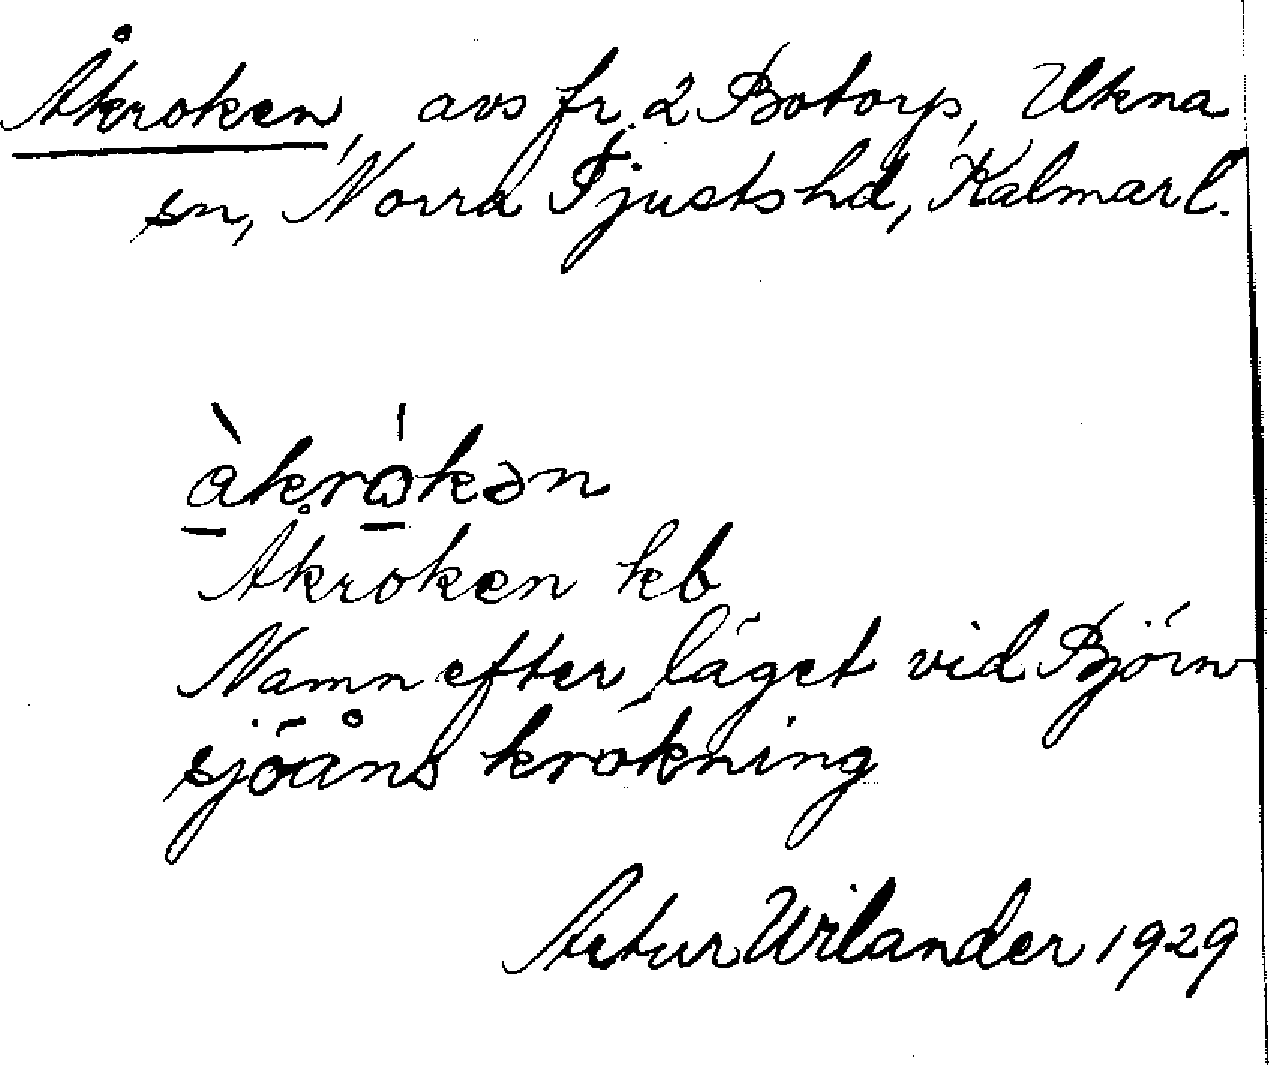 Åkroken, avs fr. 2 Botorp, Ukna
sn, Norra Tjusts hd, Kalmar l.
àkrókən
Åkroken kb
Namn efter läget vid Björn
sjöåns krokning
Artur Wilander 1929